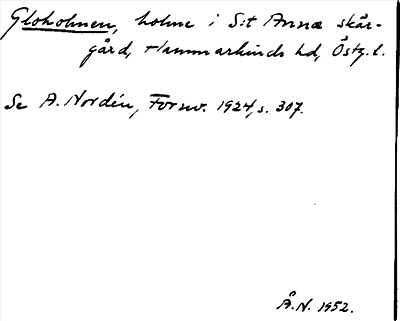 Gloholmen, holme i S:t Annæ skär-
gård, Hammarkinds hd, Östg. l.
Se A. Nordén, Fornv. 1924, s. 307.
Å.N. 1952.